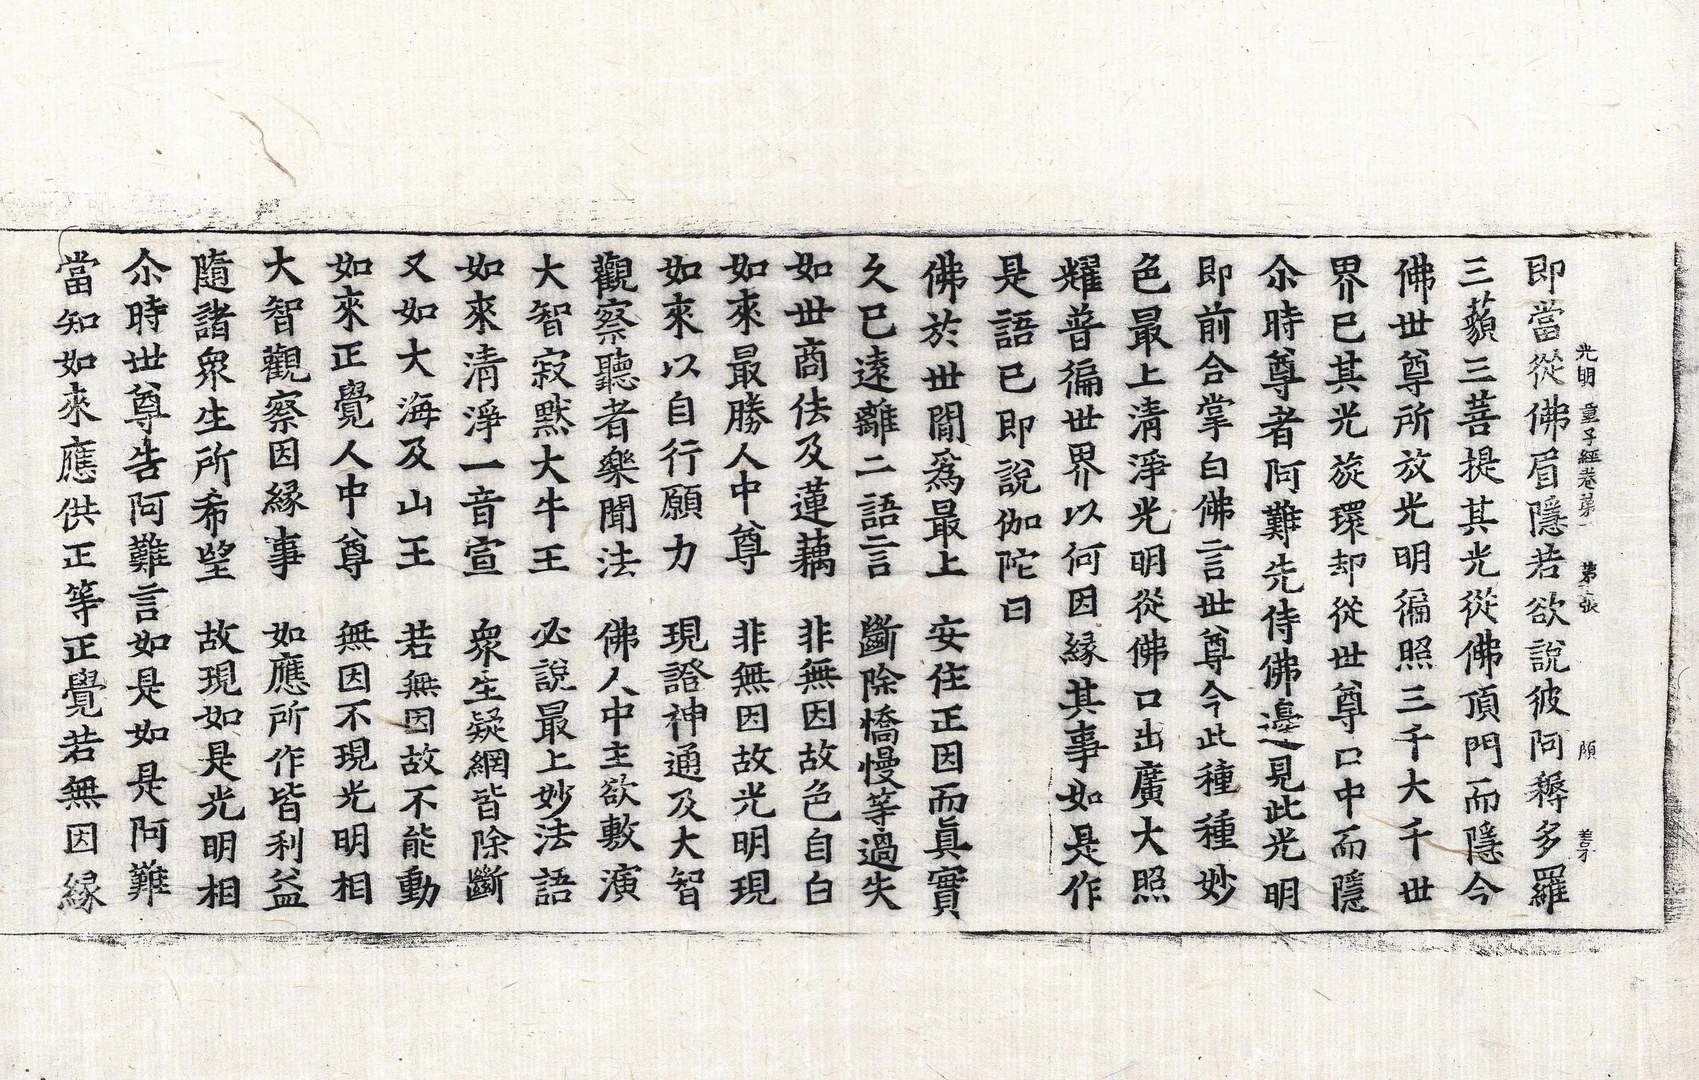 光明童子經卷第一 第 張 頎 善才
即當從佛眉隱若欲說彼阿耨多羅
三藐三菩提其光從佛頂門而隱今
佛世尊所放光明徧照三千大千世
界已其光旋環却從世尊口中而隱
尒時尊者阿難先侍佛邊見此光明
即前合掌白佛言世尊今此種種妙
色最上清淨光明從佛口出廣大照
耀普徧世界以何因緣其事如是作
是語已即說伽陀曰
佛於世間爲最上 安住正因而眞實
久已遠離二語言 斷除憍慢等過失
如世商佉及蓮藕 非無因故色自白
如來最勝人中尊 非無因故光明現
如來以自行願力 現證神通及大智
觀察聽者樂聞法 佛人中主欲敷演
大智寂默大牛王 必說最上妙法語
如來清淨一音宣 衆生疑網皆除斷
又如大海及山王 若無因故不能動
如來正覺人中尊 無因不現光明相
大智觀察因緣事 如應所作皆利益
隨諸衆生所希望 故現如是光明相
尒時世尊告阿難言如是如是阿難
當知如來應供正等正覺若無因緣